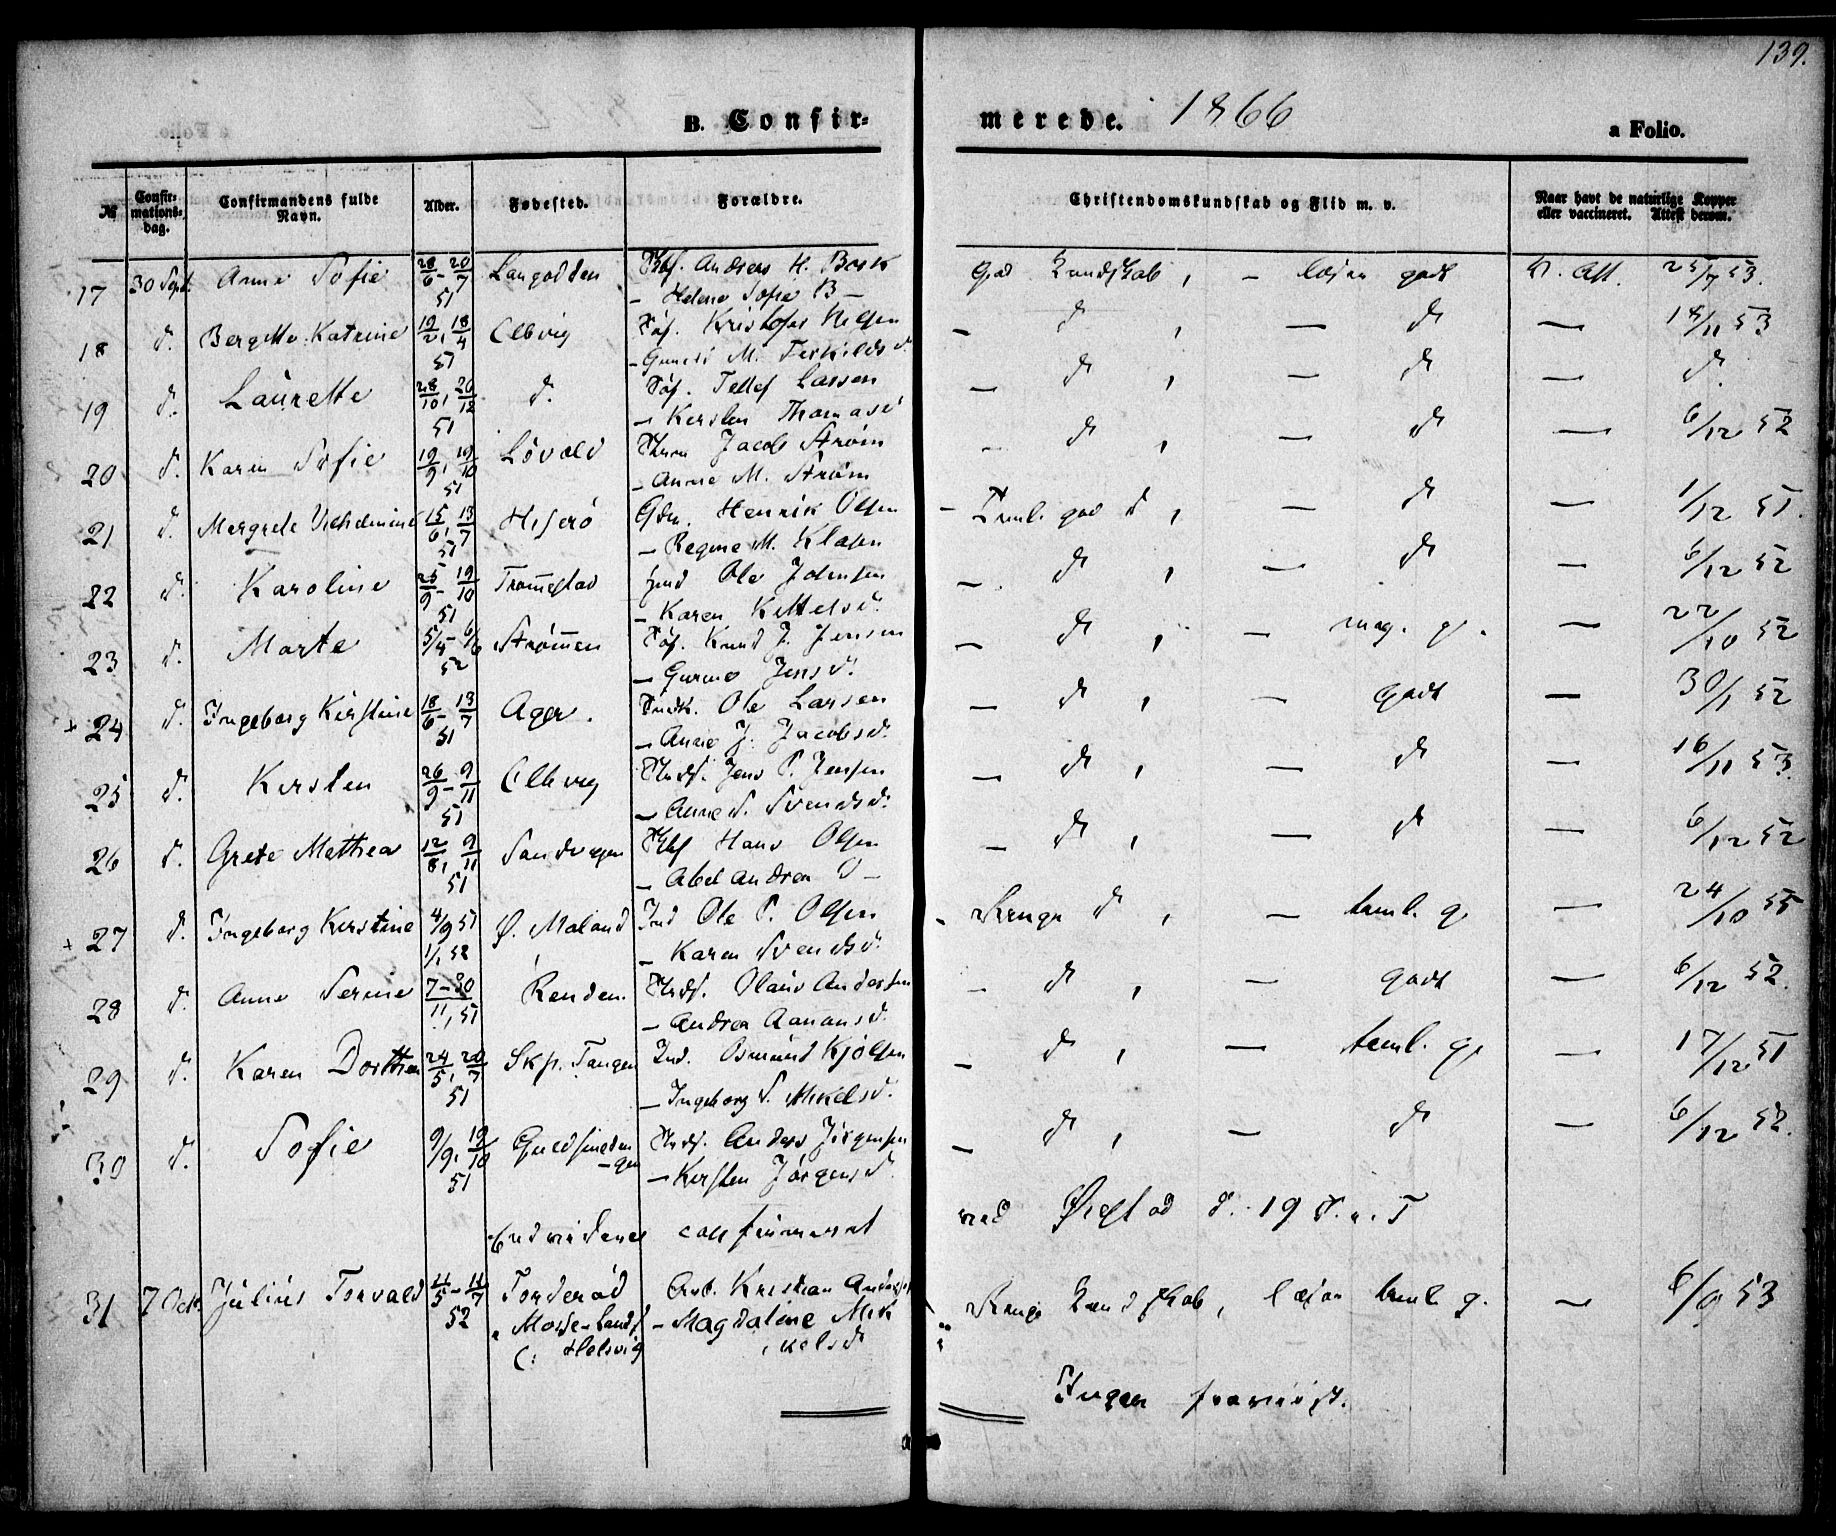 139.
B. Confirmerede. 1866
a Folio.
№ Confirmationsdag. Confirmandens fulde Navn. Alder. Fødested. Forældre. Christendomskundskab og Flid m. v. Naar havt de naturlige Kopper eller vaccineret. Attest derom.
17 30 Sept. Anne Sofie 28/6 - 20/7 51 Langodden Anders H. Berk God Kundskab, - læser godt V. Att. 25/7 53.
- Helene Sofie B -
18 d. Bergitte Katrine 19/2, 18/4 51 Elbvig Søf. Kristofer Nilsen - d, - d - 18/11 53
- Gunild M. Terkildsd.
19 d. Laurette 28/10, 20/12 51 d. Søf. Tellef Larsen - d, - d - d.
- Kersten Thomasd
20 d. Karen Sofie 19/9, 19/10 51 Løvold Jacob Strøm - d, - d - 6/12 52
- Anne M. Strøm
21 d. Margrete Vilhelmine 15/6, 13/7 51 Hiserö Gdm. Henrik Olsen - Teml. god d, - d - 1/12 51.
- Regine M. Klasen
22 d. Karoline 25/9 - 19/10 51 Tromestad Ole Johnsen - d, - d - 6/12 52
- Karen Kittelsd.
23 d. Marte 5/4 - 6/6 52 Strømmen Søf. Knud J. Jensen - d, - meg. g. - 22/10 52
- Gurine Jensd.
+ 24 d. Ingeborg Kirstine 18/6 - 13/7 51 Ager. Ole Larsen - d, - godt - 30/1 52
- Anne J. Jacobsd.
25 d. Kersten 26/9 - 9/11 51 Elbvig Jens P. Jensen - d, - d - 16/11 53.
- Anne S. Svendsd.
26 d. Grete Mathea 12/8, 9/11 51 Sandvigen Hans Olsen - d, - d - 6/12 52
- Abel Andrea O -
+ 27 d. Ingeborg Kirstine 4/9 51 1/1, 52 Ø. Moland Ind Ole P. Olsen - Ringe d, - teml. g. - 24/10 55
- Karen Svendsd.
28 d. Anne Serine 7 - 30/11, 51 Renden. Olaus Andersen - d, - godt - 6/12 52.
- Andrea Aanonsd.
29 d. Karen Dorthea 24/5, 20/7 51 Skp. Tangen Ind. Osmund Kjölsen - d, - teml. g. - 17/12 51
- Ingeborg S. Mikelsd.
30 d. Sofie 9/9, 19/10 51 Guldsmeden-gen Anders Jörgensen - d, - d - 6/12 52.
- Kersten Jörgensd.
Endvidere confirmeret ved Øiestad d. 19 S. e. T
31 7 Octb. Julius Torvald 11/5 - 11/7 52 Torderød Arb. Kristian Andersen Ringe Kundskab, læser teml. g. - 8/9 53
v Mosse Lands - Magdaline Mik
(: Helsvig kelsd
Ingen fraviist.